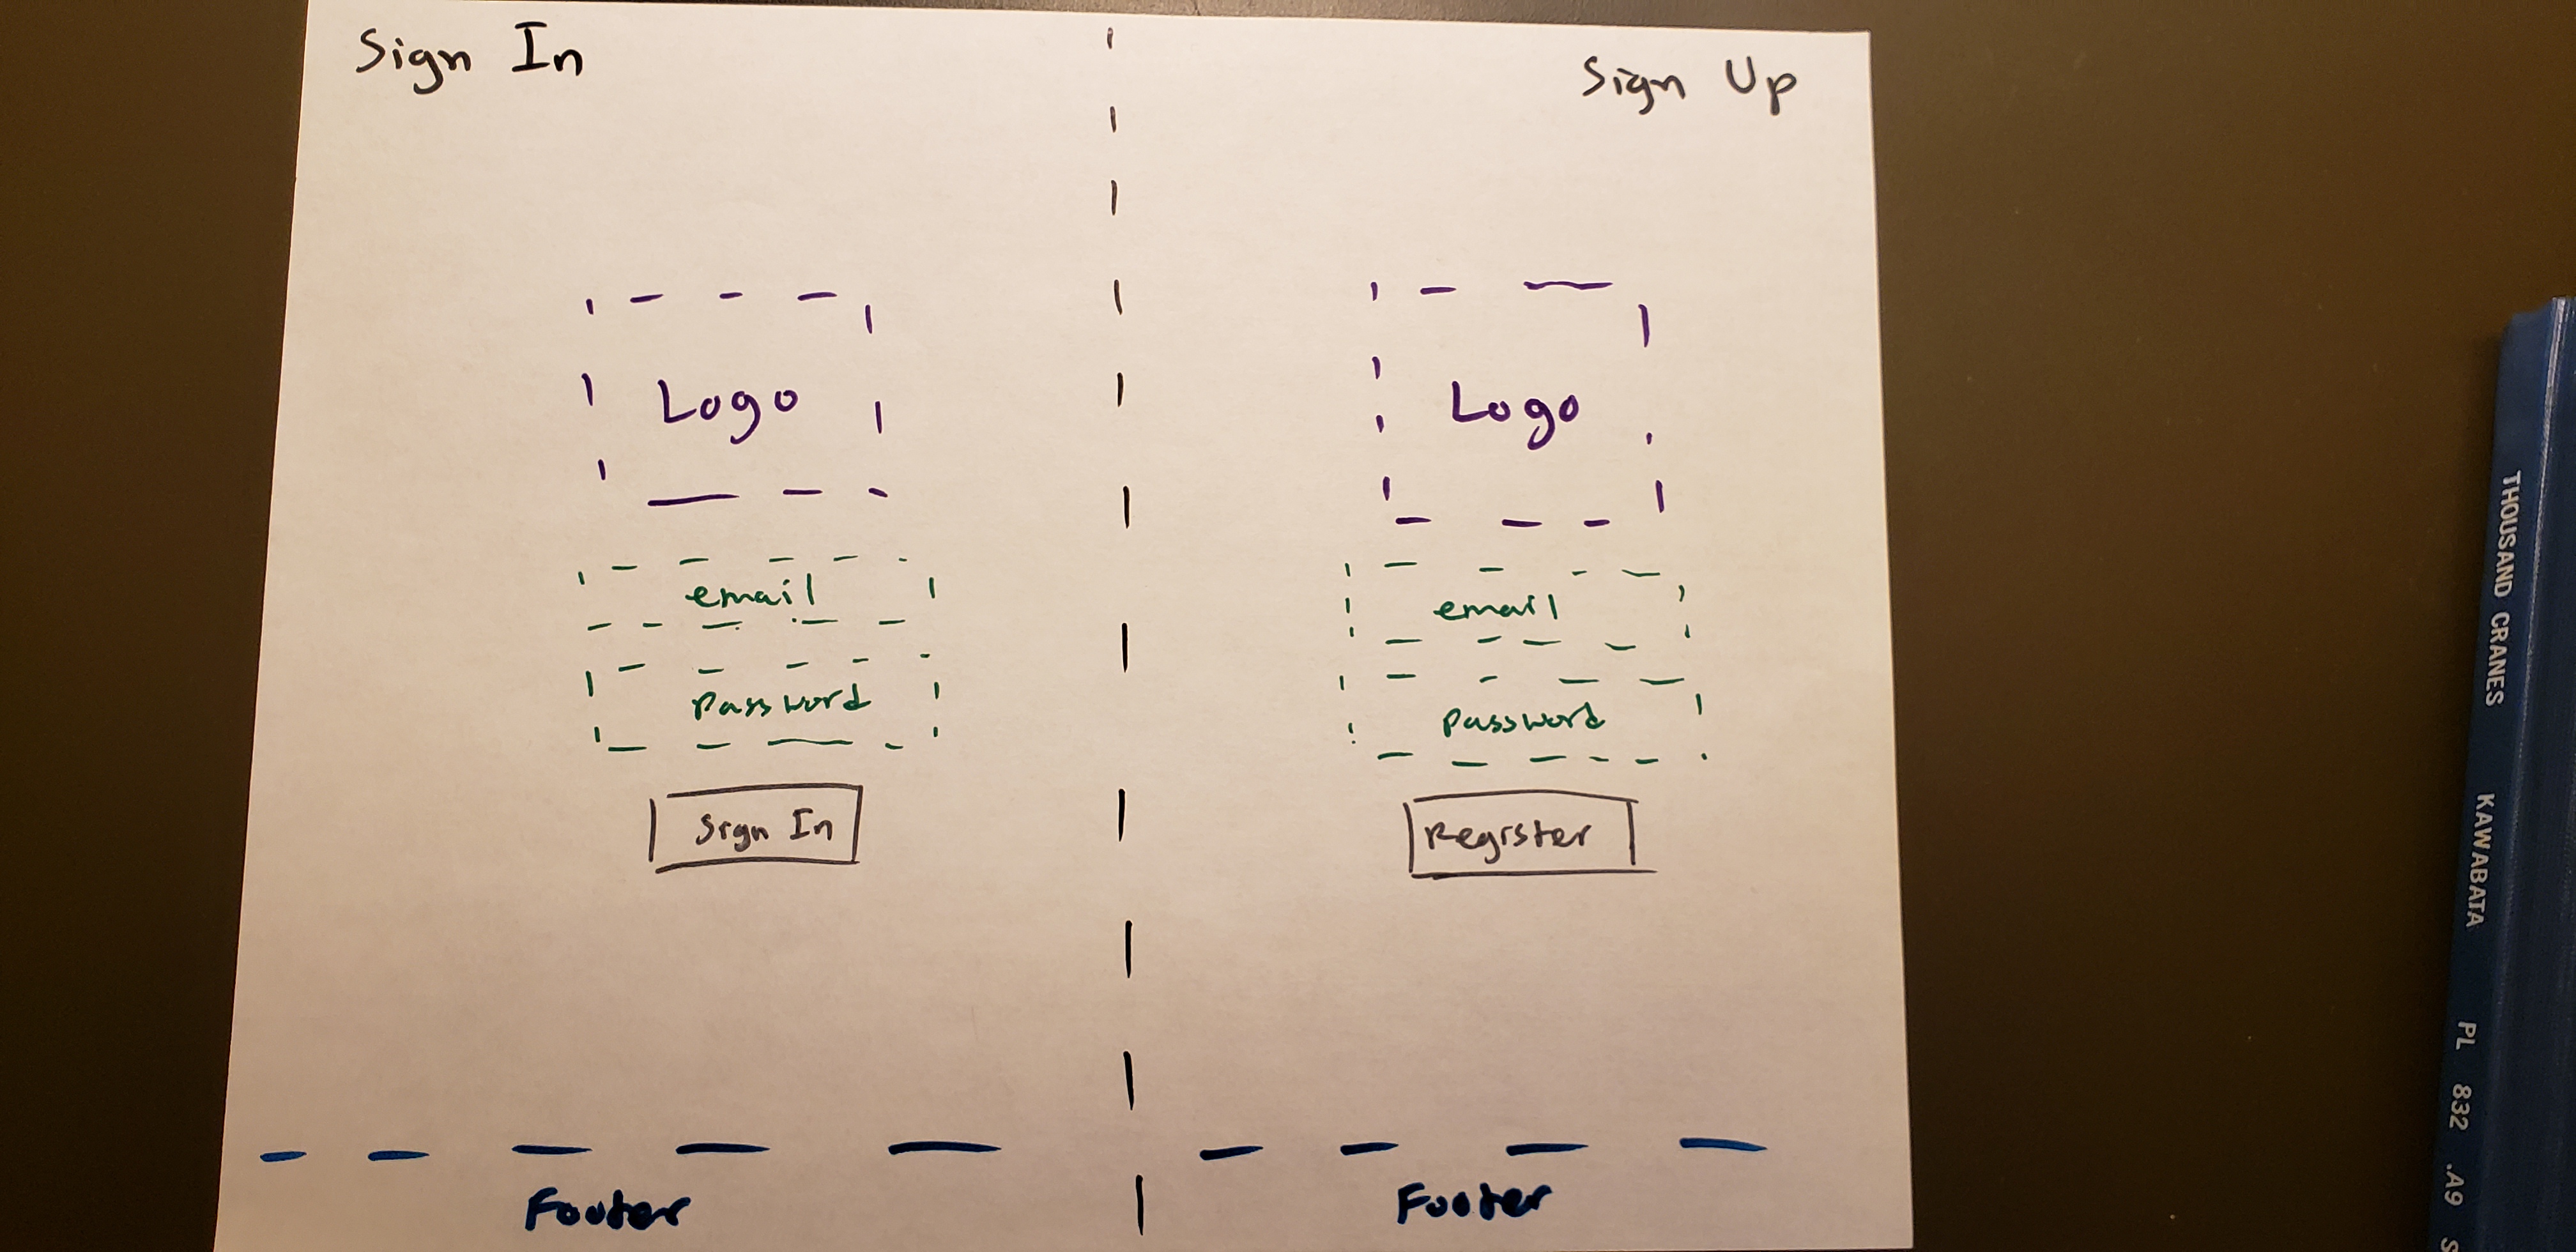 Sign In
Logo
email
password
Sign In
Footer
Sign Up
Logo
email
password
Register
Footer
THOUSAND CRANES KAWABATA PL 832 .A9 S